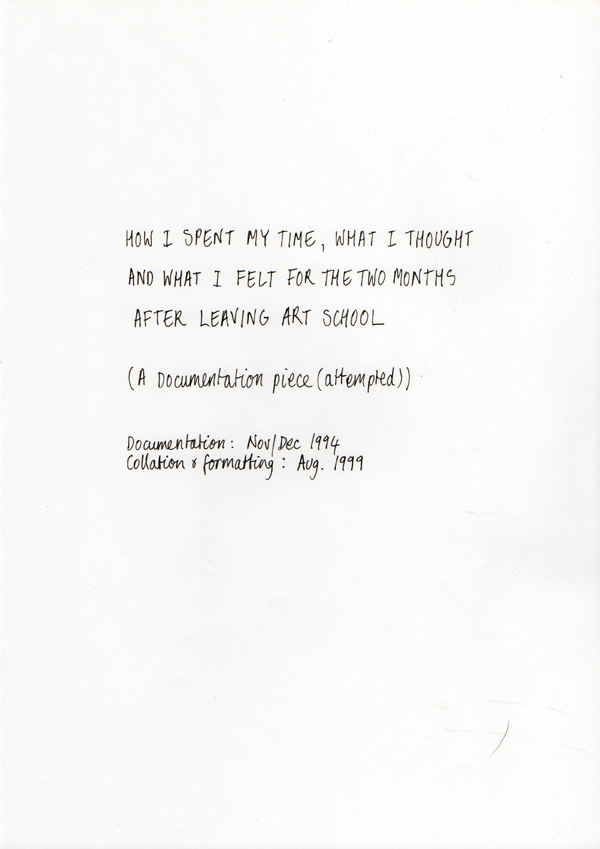 HOW I SPENT MY TIME, WHAT I THOUGHT
AND WHAT I FELT FOR THE TWO MONTHS
AFTER LEAVING ART SCHOOL
(A Documentation piece (attempted))
Documentation: Nov/Dec 1994
Collation & formatting: Aug. 1999